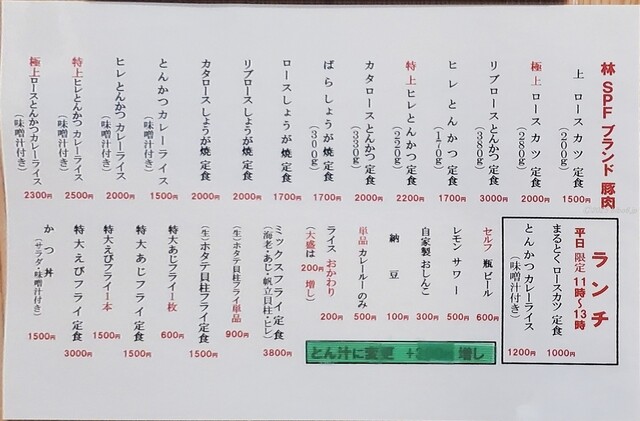 林 SPF ブランド 豚肉
上 ロースカツ 定食
(200g)
1500円
極上 ロースカツ 定食
(280g)
2000円
リブロースとんかつ 定食
(380g)
3000円
ヒレ とんかつ 定食
(170g)
1700円
特上 ヒレとんかつ 定食
(220g)
2200円
カタロースとんかつ 定食
(330g)
2000円
ばらしょうが焼 定食
(300g)
1700円
ロースしょうが焼 定食
1700円
リブロースしょうが焼 定食
2000円
カタロースしょうが焼 定食
2000円
とんかつカレーライス
(味噌汁付き)
1500円
ヒレとんかつ カレーライス
(味噌汁付き)
2000円
特上ヒレとんかつ カレーライス
(味噌汁付き)
2500円
極上ロースとんかつカレーライス
(味噌汁付き)
2300円
ランチ
平日 限定 11時〜13時
まるとくロースカツ 定食
1000円
とんかつカレーライス
(味噌汁付き)
1200円
セルフ 瓶ビール
600円
レモン サワー
500円
自家製おしんこ
300円
納豆
100円
単品 カレールーのみ
500円
ライス おかわり
(大盛は 200円 増し)
200円
ミックスフライ定食
(海老・あじ・帆立貝柱・ヒレ)
3800円
(生)ホタテ貝柱フライ単品
900円
(生)ホタテ貝柱フライ定食
1500円
特大あじフライ1枚
600円
特大あじフライ定食
1500円
特大えびフライ1本
1500円
特大えびフライ定食
3000円
かつ丼
(サラダ・味噌汁付き)
1500円
とん汁に変更 + 増し